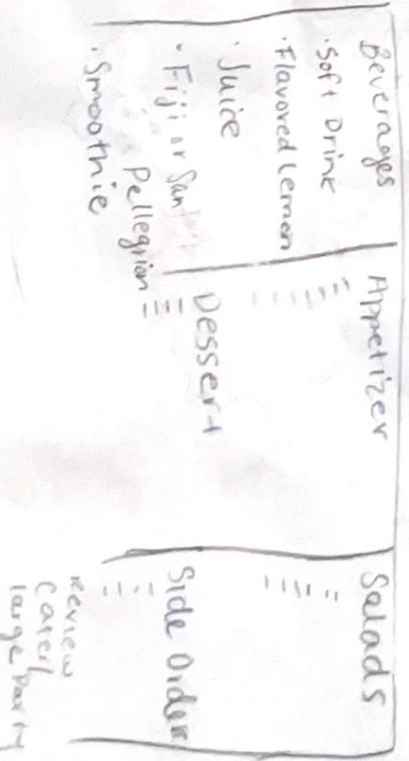 Beverages
· Soft Drink
· Flavored Lemon
· Juice
· Fiji or San
Pellegrion
· Smoothie
Appetizer
Dessert
Salads
Side Order
Review
Cater/
large Party